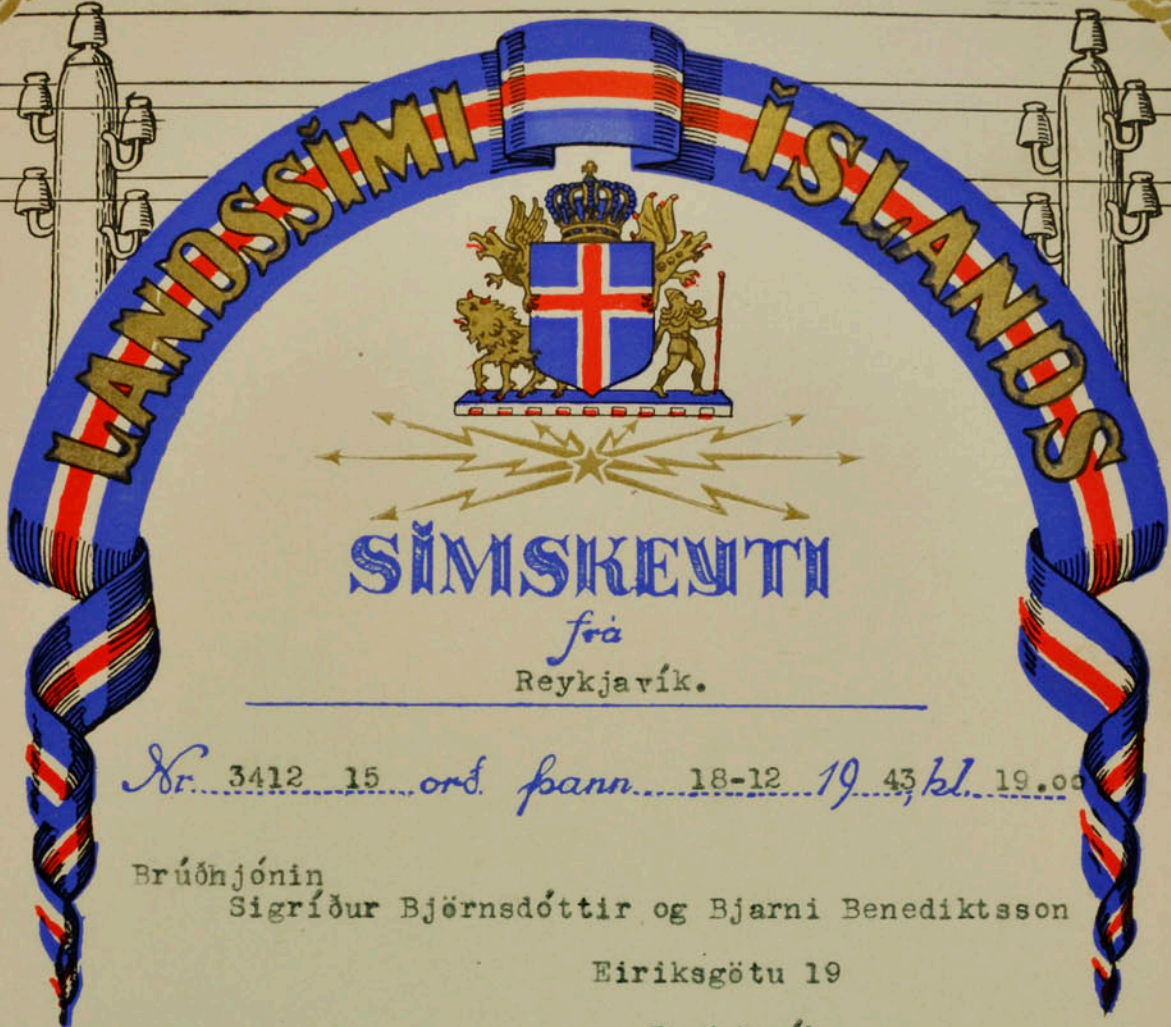 LANDSSÍMI ÍSLANDS
SÍMSKEYTI
frá
Reykjavík.
Nr. 3412 15 orð. þann 18-12 19 43, kl. 19.00
Brúðhjónin
Sigríður Björnsdóttir og Bjarni Benediktsson
Eiriksgötu 19